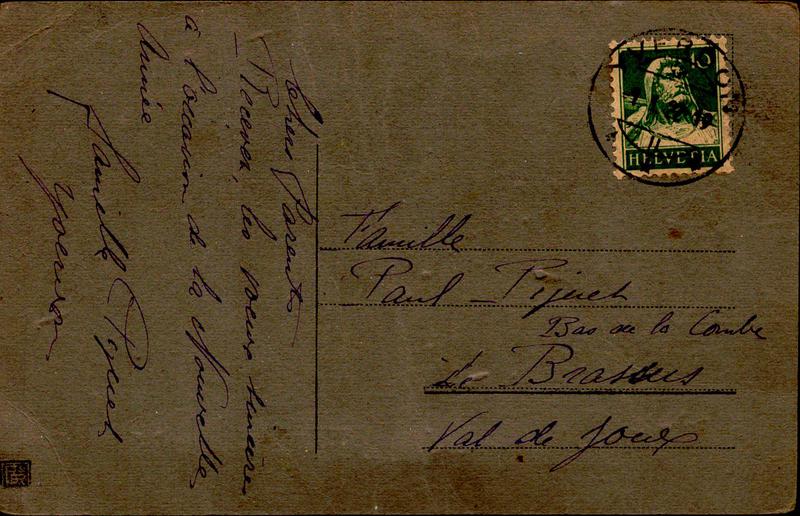 Chers Parents
Recevez, les voeux sincères
à l'occasion de la Nouvelle
Année
Famille Piguet
Yverdon
10
HELVETIA
Famille
Paul - Piguet
Bas de la Combe
Le Brassus
Val de Joux